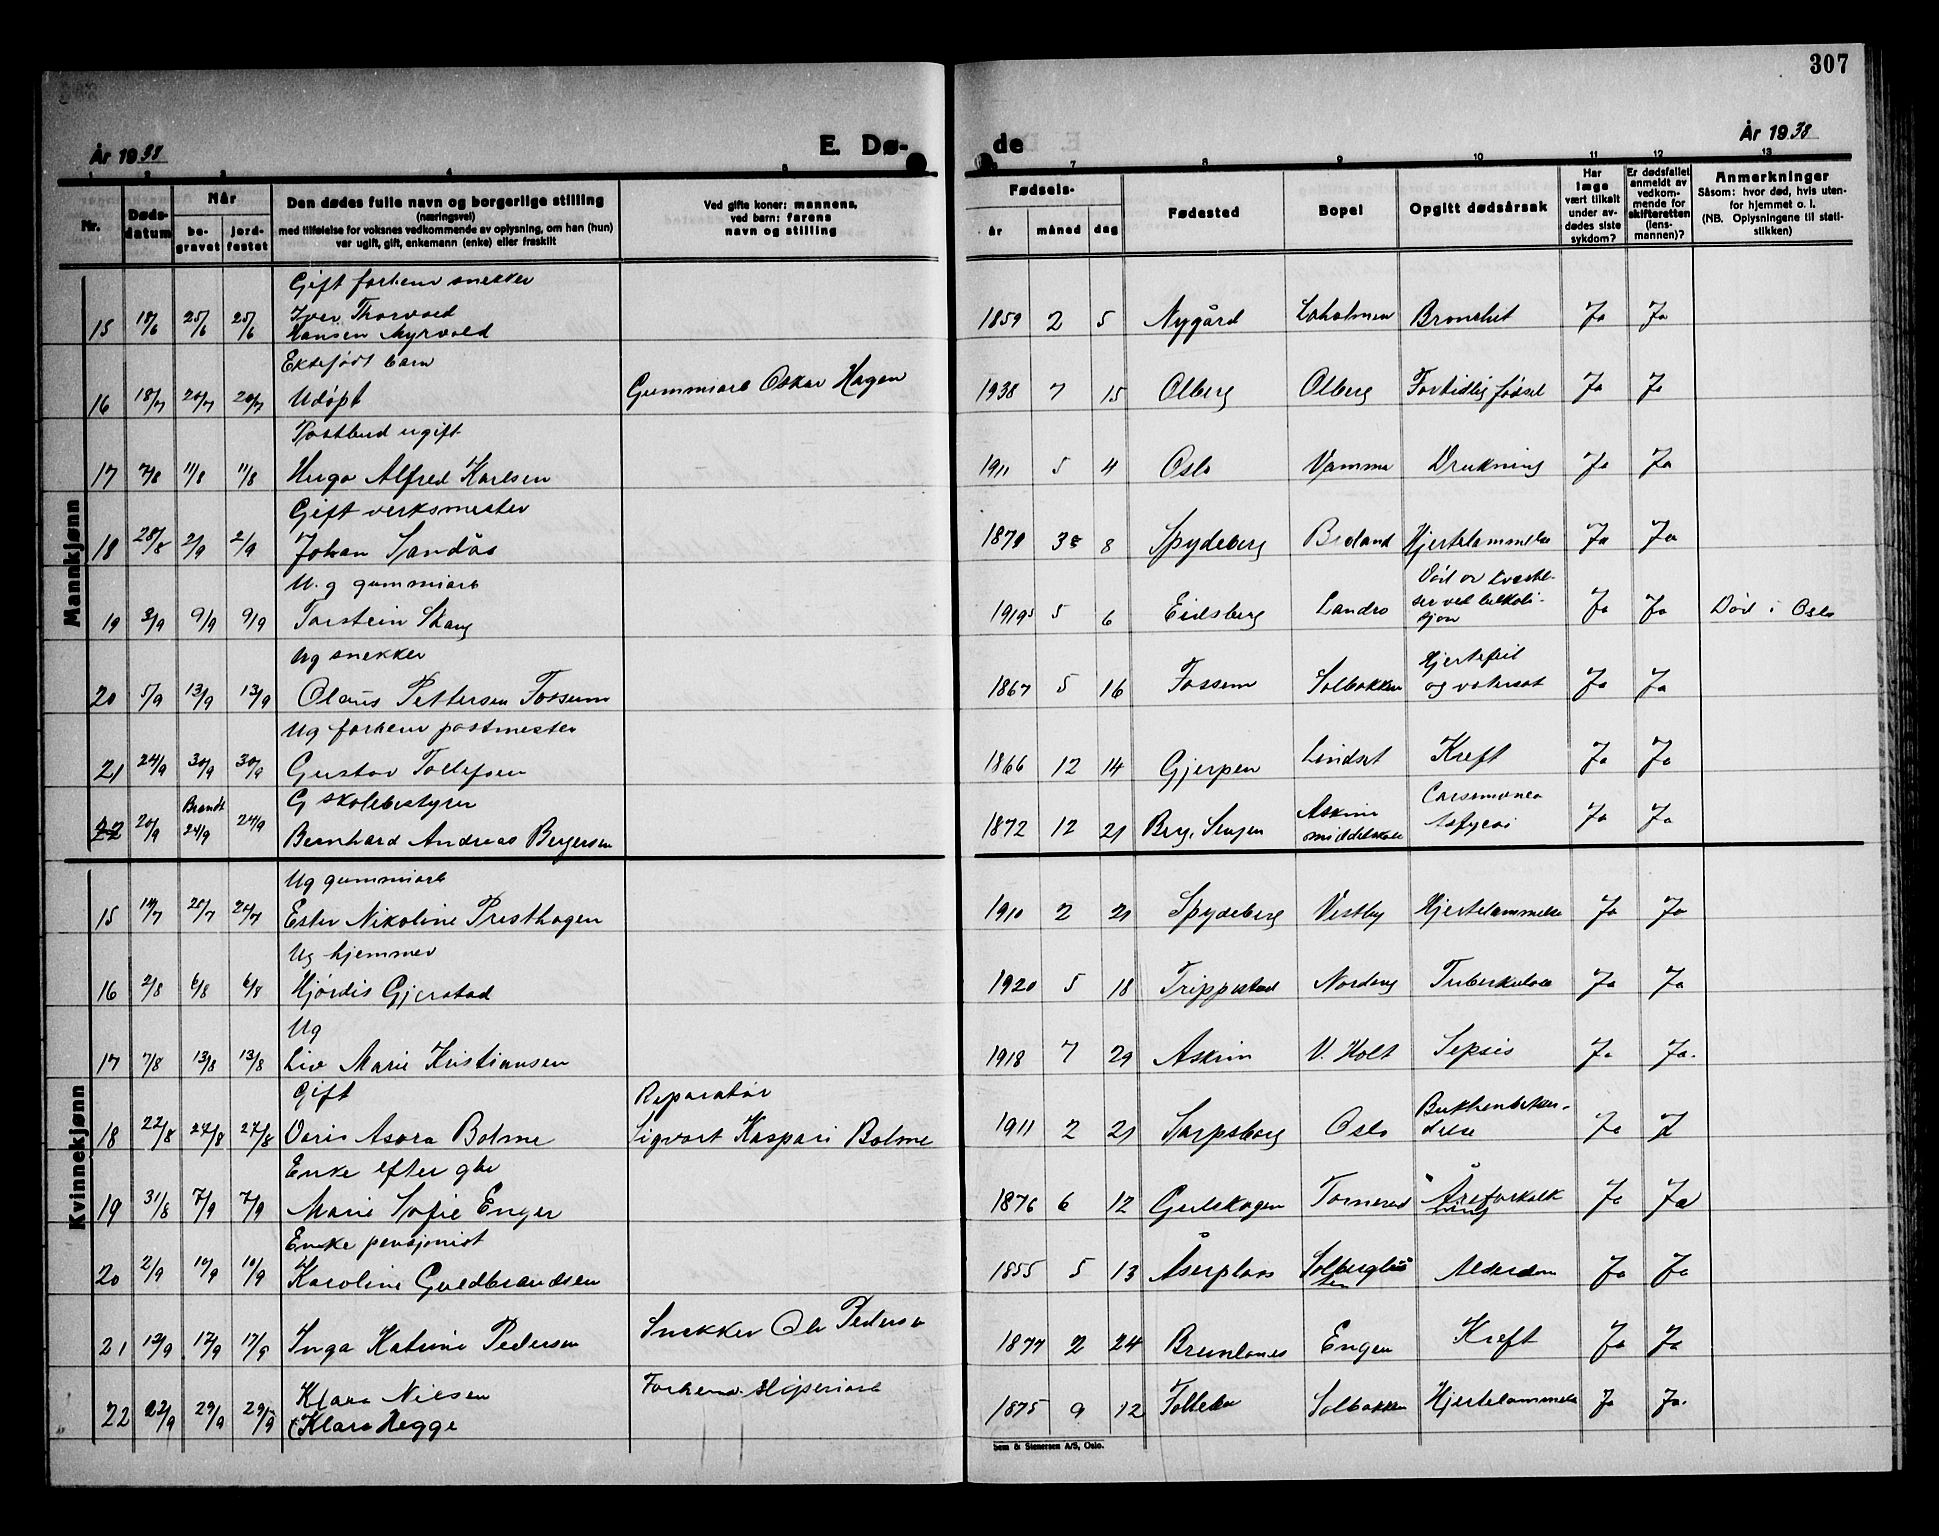 307
År 1938
E. Dø-
de
År 1938
1 2 3 4 5 7 8 9 10 11 12 13
Nr.
Døds-
datum
Når
be-
gravet
jord-
festet
Den dødes fulle navn og borgerlige stilling
(næringsvei)
med tilføielse for voksnes vedkommende av oplysning, om han (hun)
var ugift, gift, enkemann (enke) eller fraskilt
Ved gifte koner: mannens,
ved barn: farens
navn og stilling
Fødsels-
år måned dag
Fødested
Bopel
Opgitt dødsårsak
Har
læge
vært tilkalt
under av-
dødes siste
sykdom?
Er dødsfallet
anmeldt av
vedkom-
mende for
skifteretten
(lens-
mannen)?
Anmerkninger
Såsom: hvor død, hvis uten-
for hjemmet o. l.
(NB. Oplysningene til stati-
stikken)
Mannkjønn
Gift forhenv snekker
15 18/6 25/6 25/6 Iver Thorvald
Hansen Myrvold
1859 2 5 Nygård Loholmen Bronchit Ja Ja
Ektefødt barn
16 18/7 20/7 20/7 Udøpt Gummiarb Oskar Hagen 1938 7 15 Olberg Olberg Fortidlig fødsel Ja Ja
Postbud ugift
17 7/8 11/8 11/8 Hugo Alfred Karlsen 1911 5 4 Oslo Vamma Drukning Ja Ja
Gift verksmester
18 28/8 2/9 2/9 Johan Sandås 1879 3 8 Spydeberg Hjertelammelse Ja Ja
U.g gummiarb
19 3/9 9/9 9/9 Torstein Skaug 1919 5 6 Eidsberg Landro
Død i Oslo
Ja Ja
Ug snekker
20 5/9 13/9 13/9 Olaus Pettersen Fossum 1867 5 16 Fossum Solbakken
Hjertefeil
og vatersot Ja Ja
Ug forhenv postmester
21 24/9 30/9 30/9 Gustav Tollefsen 1866 12 14 Gjerpen Lindset Kreft Ja Ja
G skolebestyrer
Brendt
22 20/9 24/9 24/9 Bernhard Andreas Bergersen 1872 12 21 Berg, Senjen
Askim
middelskole
Ja Ja
Kvinnekjønn
Ug gummiarb
15 20/7 20/7 Ester Nikoline Presthagen 1910 2 21 Spydeberg Vestby Hjertelammelse Ja Ja
Ug hjemmev
16 2/8 6/8 6/8 Hjørdis Gjerstad 1920 5 18 Trippestad Nordeng Tuberkulose Ja Ja
Ug
17 7/8 13/8 13/8 Liv Marie Kristiansen 1918 7 29 Askim V. Holt Sepsis Ja Ja.
Gift Reparatør
18 22/8 27/8 27/8 Doris Asora Bolme Sigvart Kaspari Bolme 1911 2 21 Sarpsborg Oslo
Ja J
Enke efter gbr
19 31/8 7/9 7/9 Marie Sofie Enger 1876 6 12 Gulskogen Tomerud Åreforkalk
ning Ja Ja
Enke pensjonist
20 2/9 10/9 10/9 Karoline Guldbrandsen 1855 5 13 Åserplass Alderdom Ja Ja
21 12/9 17/9 17/9 Inga Katrine Pedersen Snekker Ole Pedersen 1877 2 24 Brunlanes Engen Kreft Ja Ja
Klara Nilsen
22 22/9 29/9 29/9 (Klara Hegge Forhenv. sliperiarb 1875 9 12 Solbakken Hjertelammelse Ja Ja.
Sem & Stenersen A/S, Oslo.